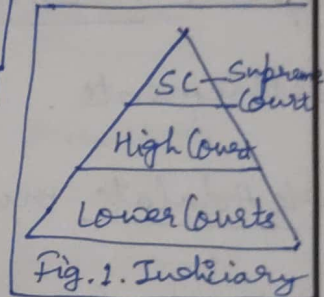 SC - Supreme
Court
High Court
Lower Courts
Fig. 1. Judiciary